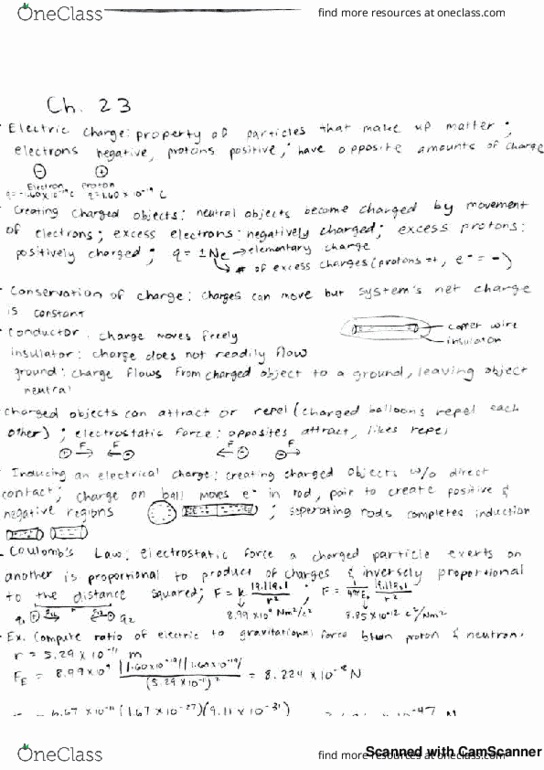 OneClass find more resources at oneclass.com
Ch. 23
Electric charge: property of particles that make up matter;
electrons negative, protons positive, have opposite amounts of charge
Electron Proton
q=-1.60x10⁻¹⁹C q=1.60 x 10⁻¹⁹ C
Creating charged objects: neutral objects become charged by movement
of electrons; excess electrons: negatively charged; excess protons:
positively charged; q = ±Ne → elementary charge
↳ # of excess charges (protons = +, e⁻ = -)
Conservation of charge: charges can move but system's net charge
is constant
Conductor: charge moves freely
copper wire
insulator: charge does not readily flow
insulation
ground: charge flows from charged object to a ground, leaving object
neutral
charged objects can attract or repel (charged balloons repel each
other); electrostatic force: opposites attract, likes repel
F F F F
Inducing an electrical charge: creating charged objects w/o direct
contact; charge on ball moves e⁻ in rod, pair to create positive &
negative regions ; seperating rods completes induction
Coulomb's Law: electrostatic force a charged particle exerts on
another is proportional to product of charges & inversely proportional
to the distance squared; F = k |q₁||q₂| / r² ; F = 1/4πε₀ |q₁||q₂| / r²
q₁ q₂ 8.99 x10⁹ Nm²/c² 8.85 x10⁻¹² c²/Nm²
Ex. Compute ratio of electric to gravitational force btwn proton & neutron.
r = 5.29 x 10⁻¹¹ m
F_E = 8.99x10⁹ |1.60x10⁻¹⁹||1.60x10⁻¹⁹| / (5.29 x10⁻¹¹)² = 8.224 x 10⁻⁸ N
6.67 x10⁻¹¹ (1.67 x 10⁻²⁷)(9.11 x 10⁻³¹) x 10⁻⁴⁷ N
OneClass find more resources at oneclass.com
Scanned with CamScanner